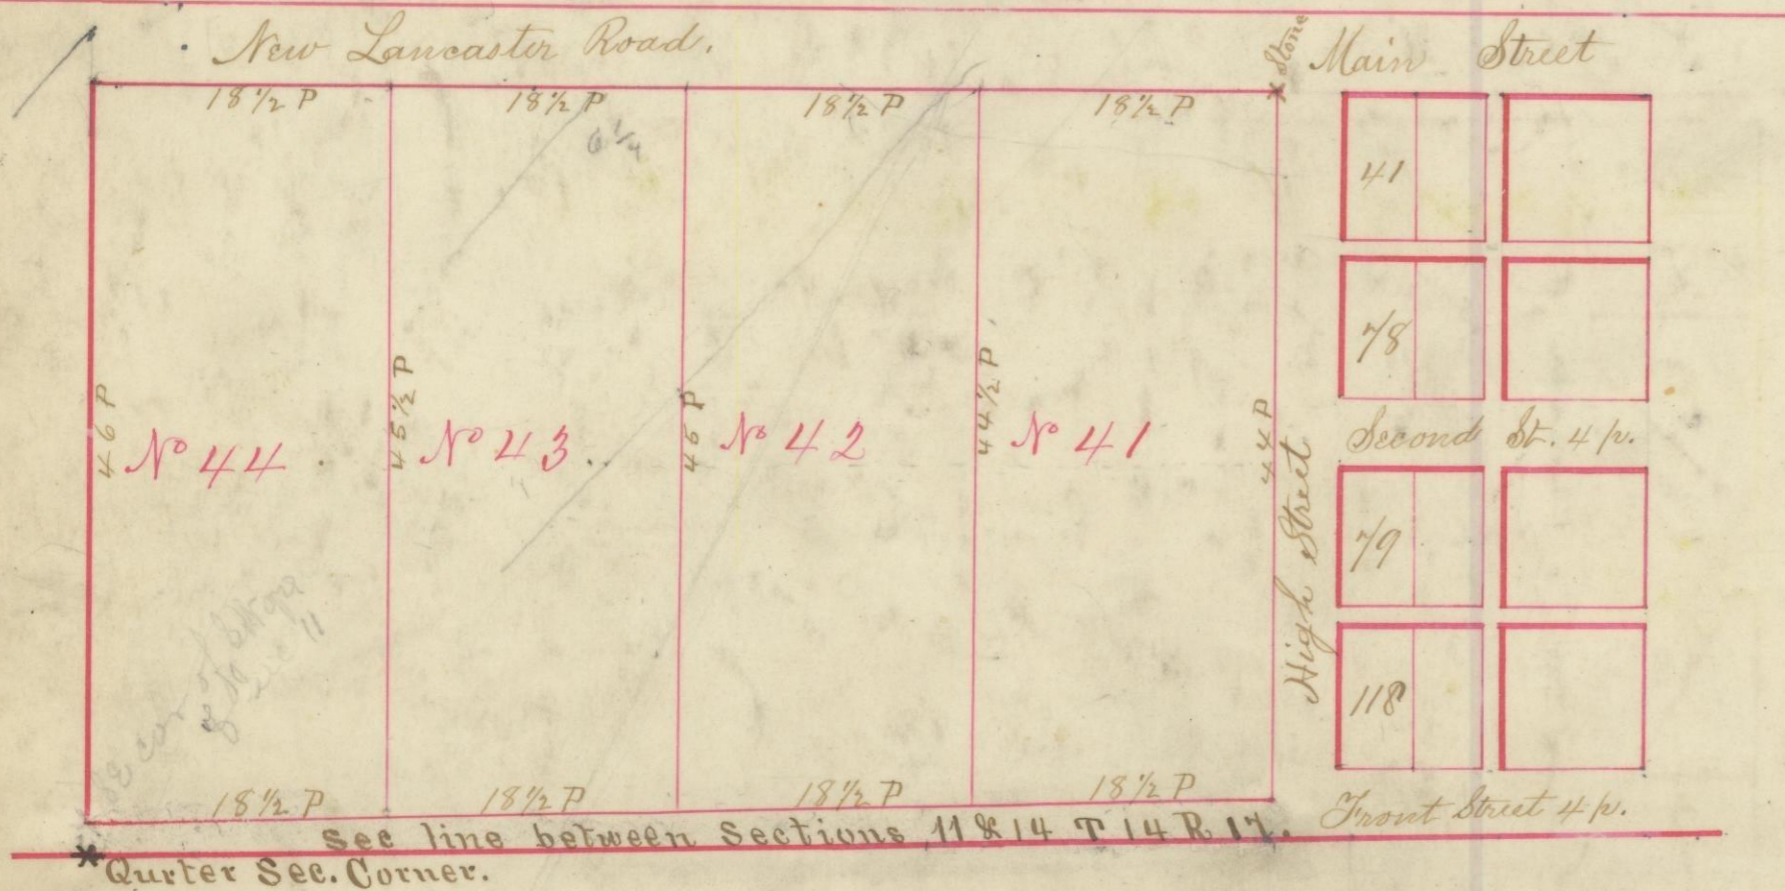 New Lancaster Road.
Stone
Main Street
18½ P 18½ P 18½ P 18½ P
6¼
46 P
No 44
45½ P
No 43
45 P
No 42
44½ P
No 41
44 P
High Street
41
78
Second St. 4 p.
79
118
Front Street 4 p.
cor of
Sec 11
18½ P 18½ P 18½ P 18½ P
Sec line between Sections 11 & 14 T 14 R 17.
Qurter Sec. Corner.